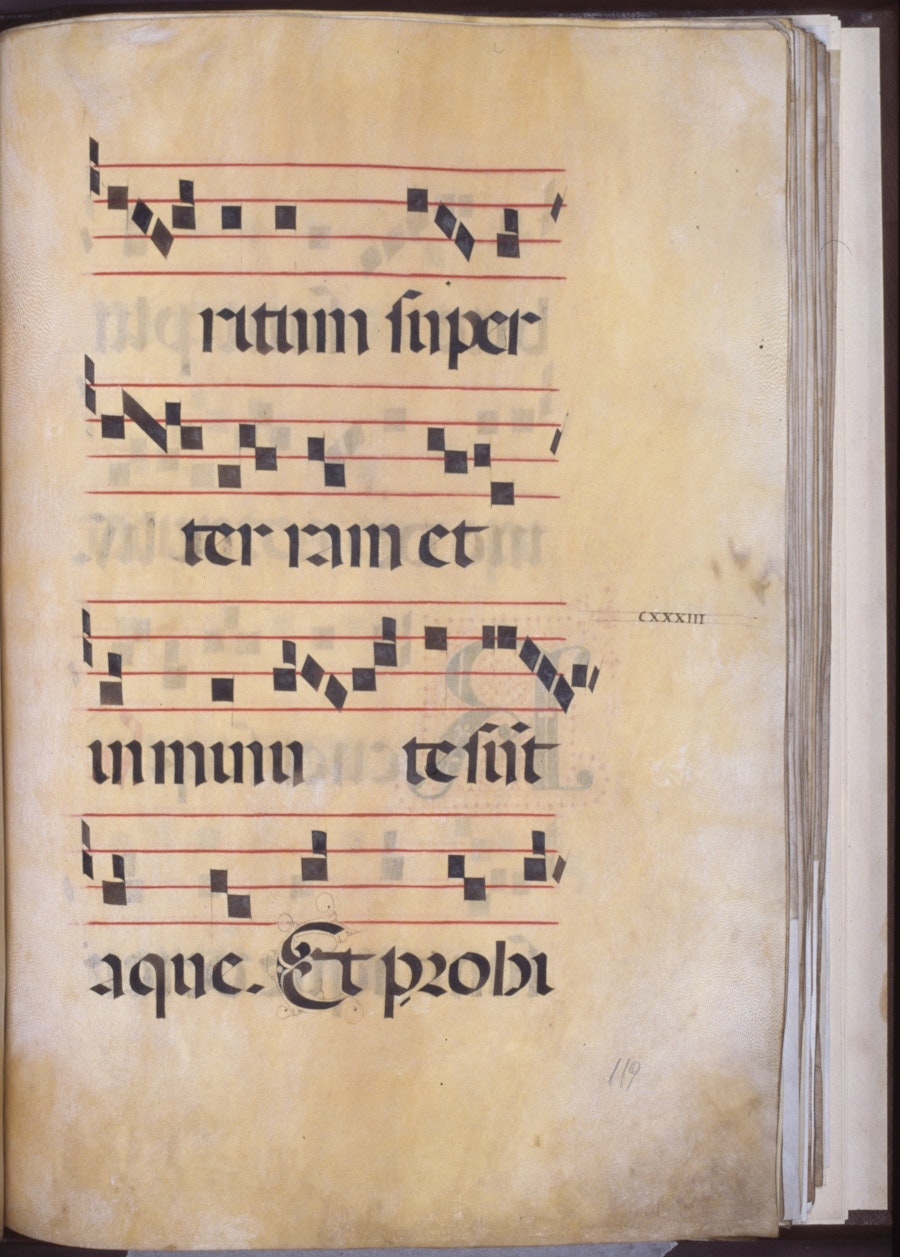 ritum super
ter ram et
in minu te sūt
CXXXIII
aque. Et prohi
119